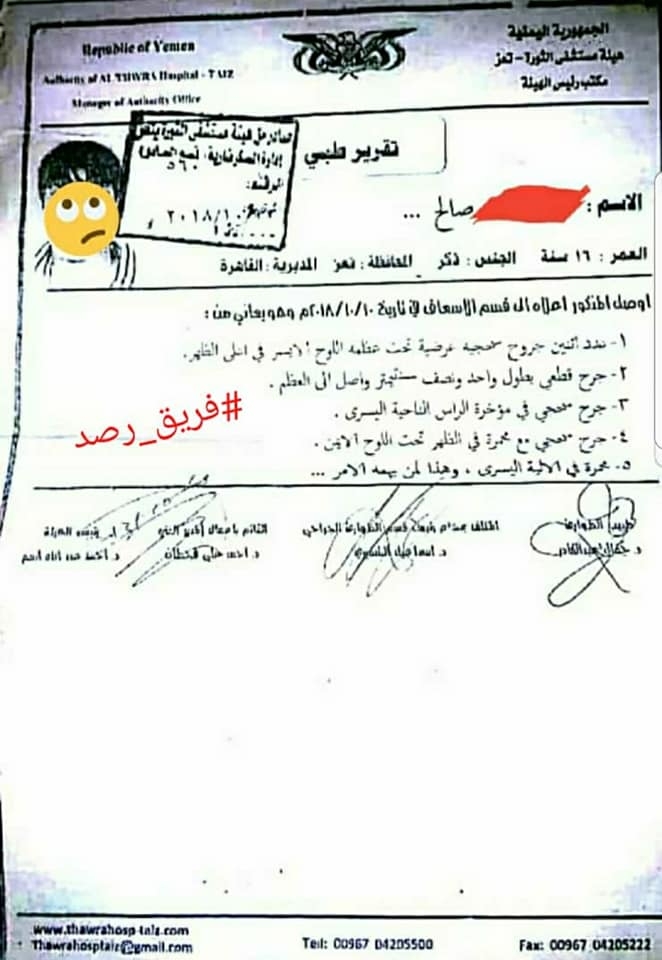 الجمهورية اليمنية
هيئة مستشفى الثورة - تعز
مكتب رئيس الهيئة
Republic of Yemen
Authority of AL THWRA Hospital - TAIZ
Manager of Authority Office
تقرير طبي
صادر من هيئة مستشفى الثورة بتعز
إدارة السكرتارية
الاسم :
صالح ...
العمر : ١٦ سنة الجنس : ذكر المحافظة : تعز المديرية : القاهرة
اوصيل المذكور اعلاه الى قسم الاسعاف في تاريخ ٢٠١٨/١٠/١٠م وهو يعاني من :
١- عدد اثنين جروح سحجيه عرضية تحت عظمه اللوح الايسر في اعلى الظهر.
٢- جرح قطعي بطول واحد ونصف سنتيمتر واصل الى العظم .
٣- جرح سحجي في مؤخرة الراس الناحية اليسرى .
٤- جرح سحجي مع محمرة في الظهر تحت اللوح الايمن .
٥- محمرة في الالية اليسرى ، وهذا لمن يهمه الامر ...
#فريق_رصد
طبيب الطوارئ
د. جمال عبدالقادر
د. اسماعيل
القائم باعمال المدير الفني
د. احمد علي قحطان
رئيس الهيئة
د. احمد انعم
www.thawrahosp-taiz.com
Thawrahosptaiz@gmail.com
Tell: 00967 04205500
Fax: 00967 04205222